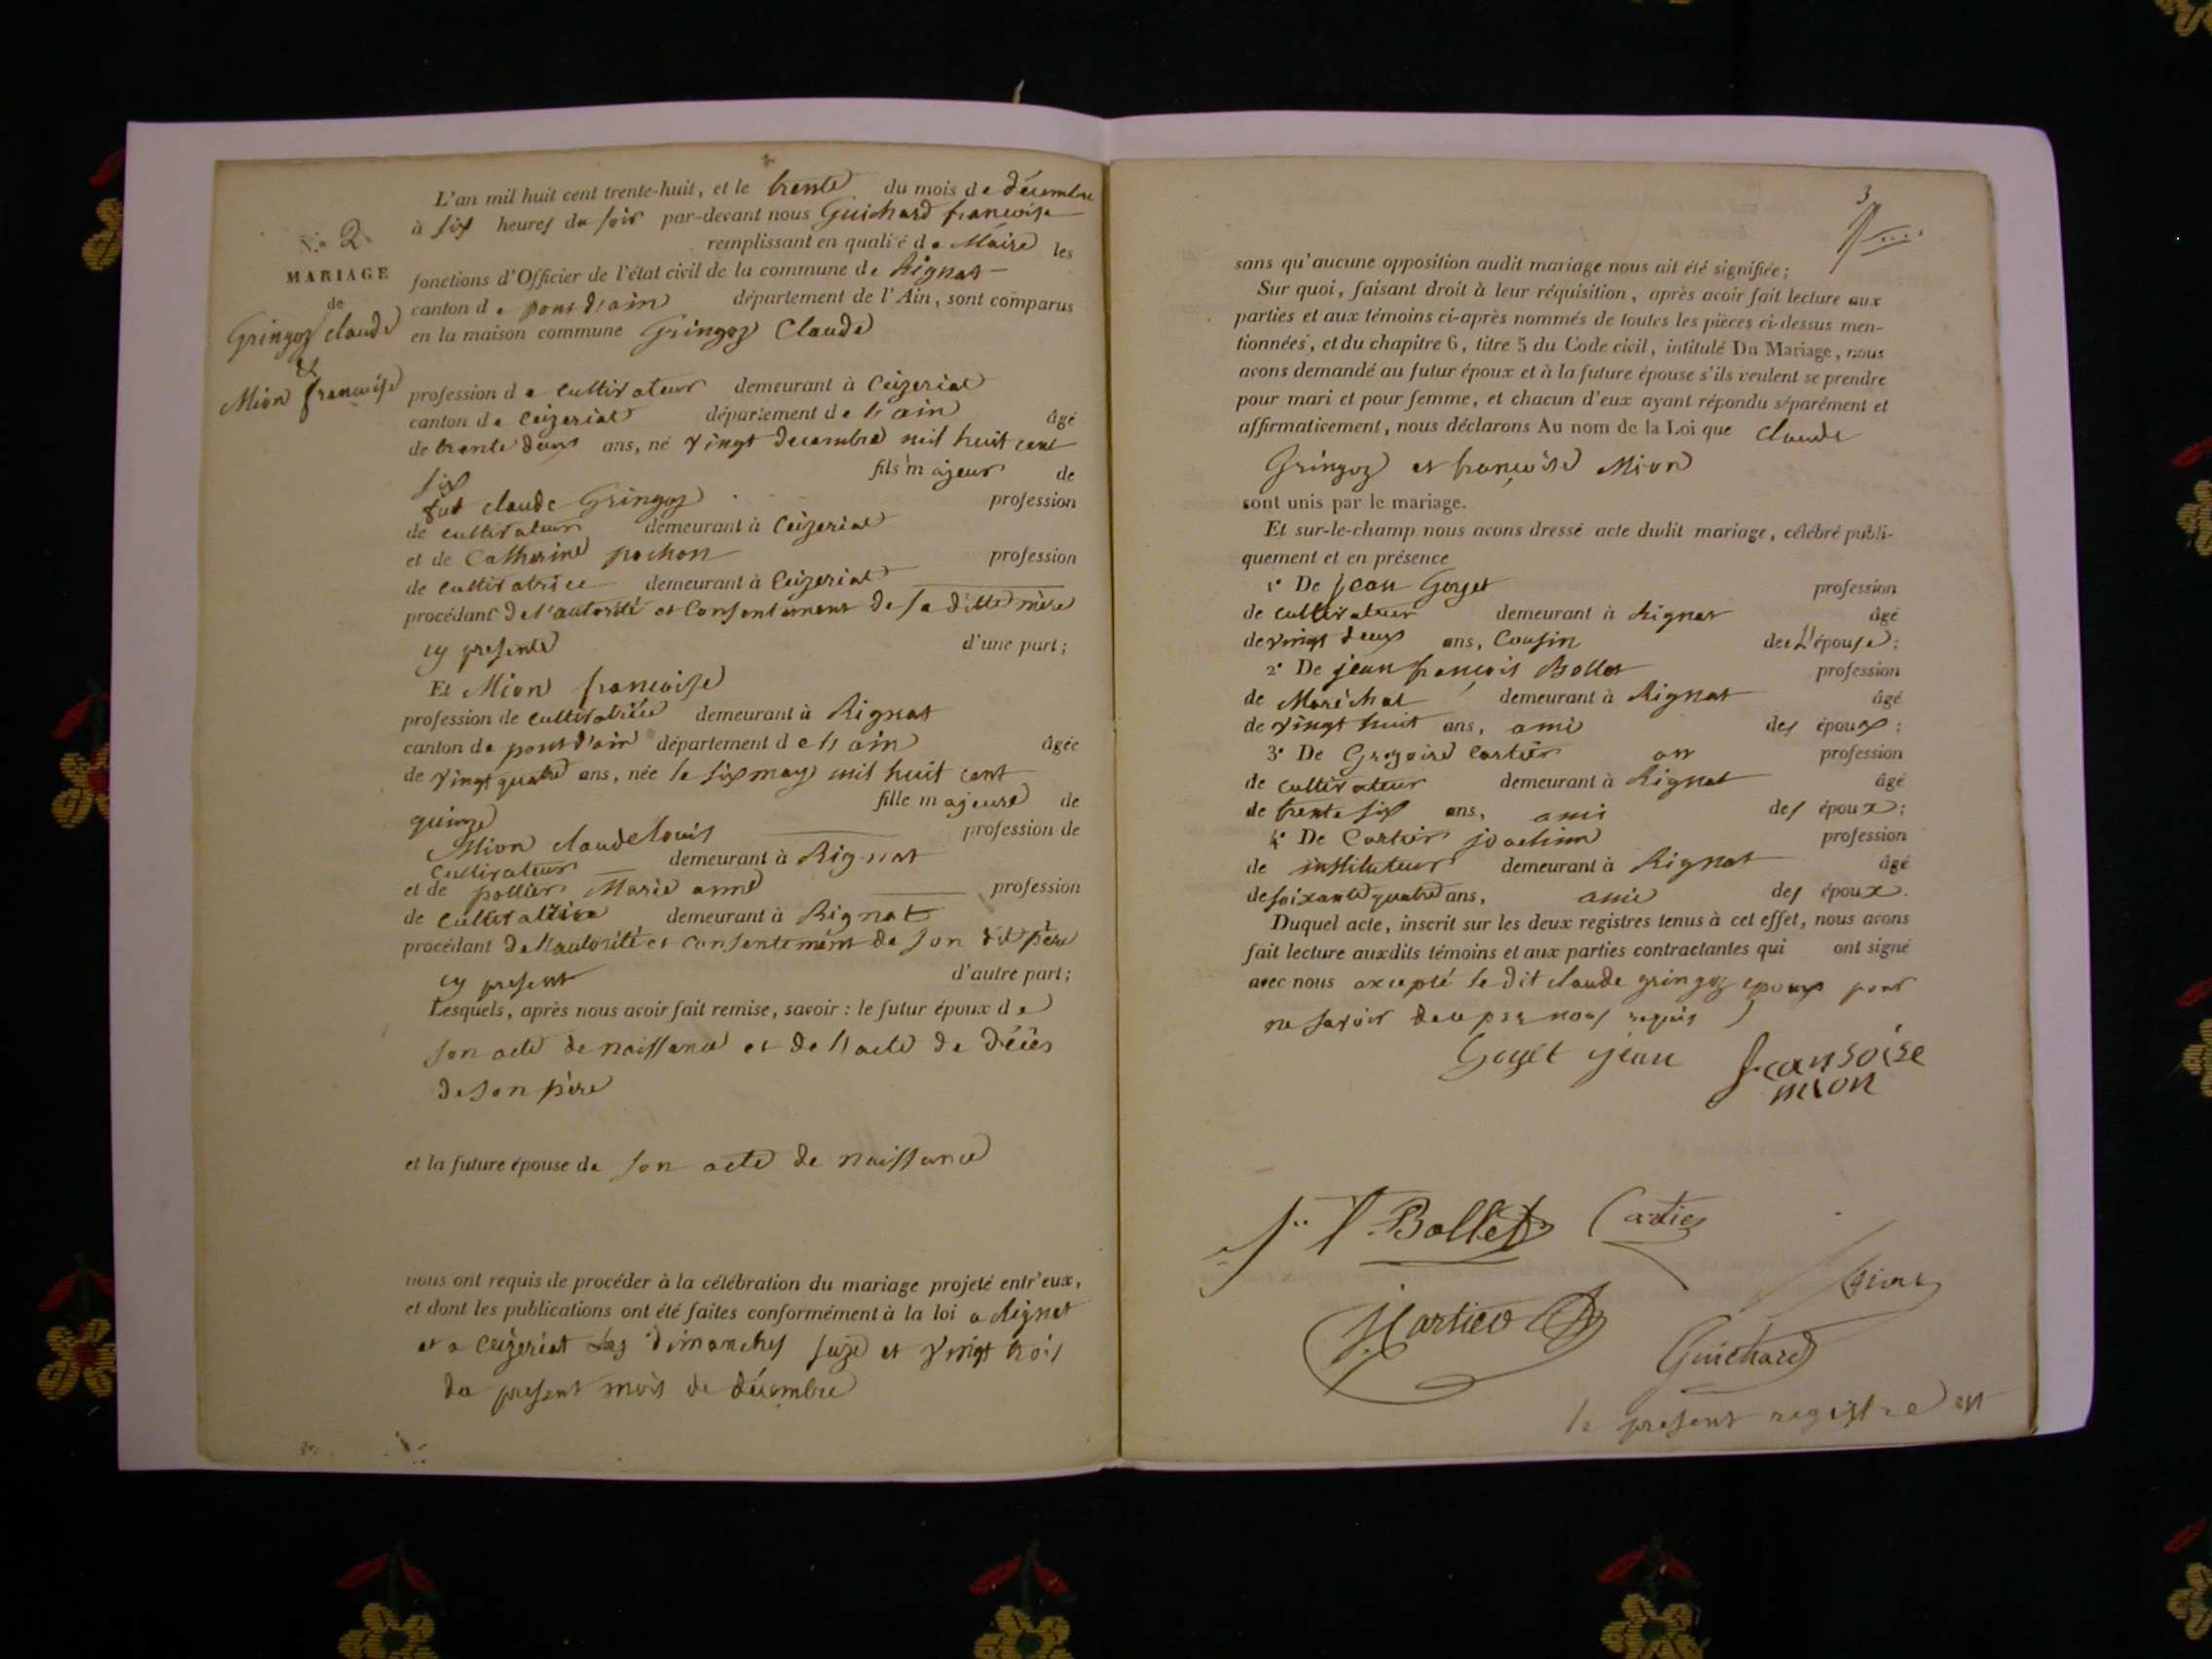 N.o 2.
MARIAGE
de
Gringoz claude
et
Mion francoise
L'an mil huit cent trente-huit, et le trente du mois de décembre
à six heures du soir par-devant nous Guichard francoise
remplissant en qualité de Maire les
fonctions d'Officier de l'état civil de la commune de Rignat
canton de pont d'ain département de l'Ain, sont comparus
en la maison commune Gringoz Claude
profession de cultivateur demeurant à Ceizeriat
canton de Ceizeriat département de l'ain âgé
de trente deux ans, né vingt decembre mil huit cent
six fils majeur de
fut claude Gringoz profession
de cultivateur demeurant à Ceizeriat
et de Catherine pochon profession
de cultivatrice demeurant à Ceizeriat
procédant de l'autorité et Consentement de sa ditte mère
cy presente d'une part;
Et Mion francoise
profession de cultivatrice demeurant à Rignat
canton de pont d'ain département de l'ain âgée
de vingt quatre ans, née le six may mil huit cent
quinze fille majeure de
Mion claude louis profession de
Cultivateur demeurant à Rignat
et de pottier Marie anne profession
de cultivatrice demeurant à Rignat
procédant de l'autorité et consentement de son dit père
cy present d'autre part;
Lesquels, après nous avoir fait remise, savoir: le futur époux de
son acte de naissance et de l'acte de décès
de son père
et la future épouse de son acte de naissance
nous ont requis de procéder à la célébration du mariage projeté entr'eux,
et dont les publications ont été faites conformément à la loi a Rignat
et a Ceizeriat les dimanches seize et vingt trois
du present mois de décembre
3
sans qu'aucune opposition audit mariage nous ait été signifiée;
Sur quoi, faisant droit à leur réquisition, après avoir fait lecture aux
parties et aux témoins ci-après nommés de toutes les pièces ci-dessus men-
tionnées, et du chapitre 6, titre 5 du Code civil, intitulé Du Mariage, nous
avons demandé au futur époux et à la future épouse s'ils veulent se prendre
pour mari et pour femme, et chacun d'eux ayant répondu séparément et
affirmativement, nous déclarons Au nom de la Loi que claude
Gringoz et françoise Mion
sont unis par le mariage.
Et sur-le-champ nous avons dressé acte dudit mariage, célébré publi-
quement et en présence
1° De jean Goyet profession
de cultivateur demeurant à Rignat âgé
de vingt deux ans, Cousin de L'épouse;
2° De jean françois Bollet profession
de Maréchal demeurant à Rignat âgé
de vingt huit ans, ami des époux;
3° De Gregoire Cartier profession
de cultivateur demeurant à Rignat âgé
de trente six ans, ami des époux;
4° De Cartier joachim profession
de instituteur demeurant à Rignat âgé
de soixante quatre ans, ami des époux.
Duquel acte, inscrit sur les deux registres tenus à cet effet, nous avons
fait lecture auxdits témoins et aux parties contractantes qui ont signé
avec nous excepté le dit claude gringoz epoux pour
ne savoir de ce par nous requis
Goyet jean fransoise
mion
J. f. Bollet Cartier
J Cartier
Mion
Guichard
le present registre est